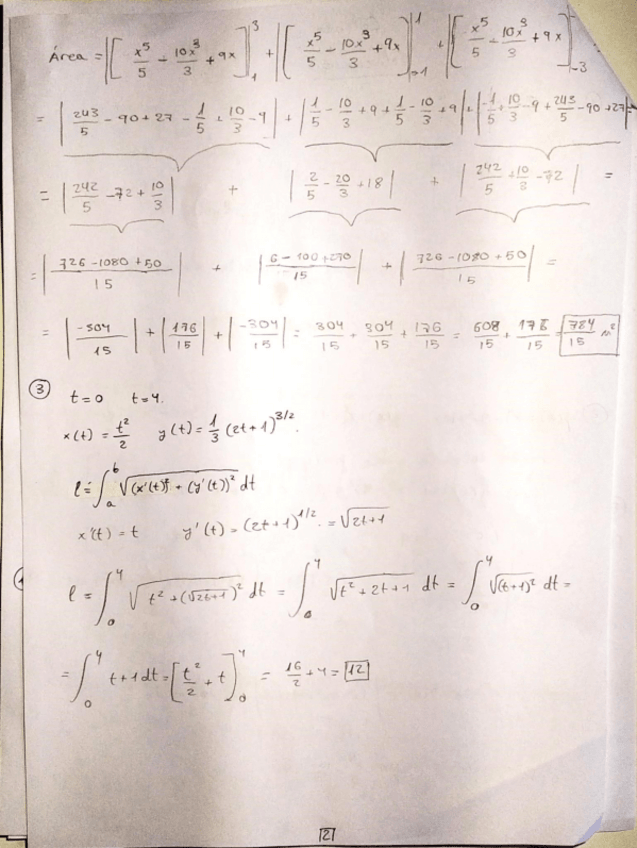 Área = |[x^5/5 - 10x^3/3 + 9x]_1^3| + |[x^5/5 - 10x^3/3 + 9x]_{-1}^1| + |[x^5/5 - 10x^3/3 + 9x]_{-3}
= |243/5 - 90 + 27 - 1/5 + 10/3 - 9| + |1/5 - 10/3 + 9 + 1/5 - 10/3 + 9| + |-1/5 + 10/3 - 9 + 243/5 - 90 + 27| =
= |242/5 - 72 + 10/3| + |2/5 - 20/3 + 18| + |242/5 + 10/3 - 72| =
= |726 - 1080 + 50 / 15| + |6 - 100 + 270 / 15| + |726 - 1080 + 50 / 15| =
= |-304/15| + |176/15| + |-304/15| = 304/15 + 304/15 + 176/15 = 608/15 + 176/15 = 784/15 u²
③ t=0 t=4.
x(t) = t²/2 y(t) = 1/3 (2t+1)^{3/2}.
l = ∫_a^b √((x'(t))² + (y'(t))²) dt
x'(t) = t y'(t) = (2t+1)^{1/2}. = √2t+1
l = ∫_0^4 √(t² + (√2t+1)²) dt = ∫_0^4 √(t² + 2t + 1) dt = ∫_0^4 √((t+1)²) dt =
= ∫_0^4 t+1 dt = [t²/2 + t]_0^4 = 16/2 + 4 = 12
2